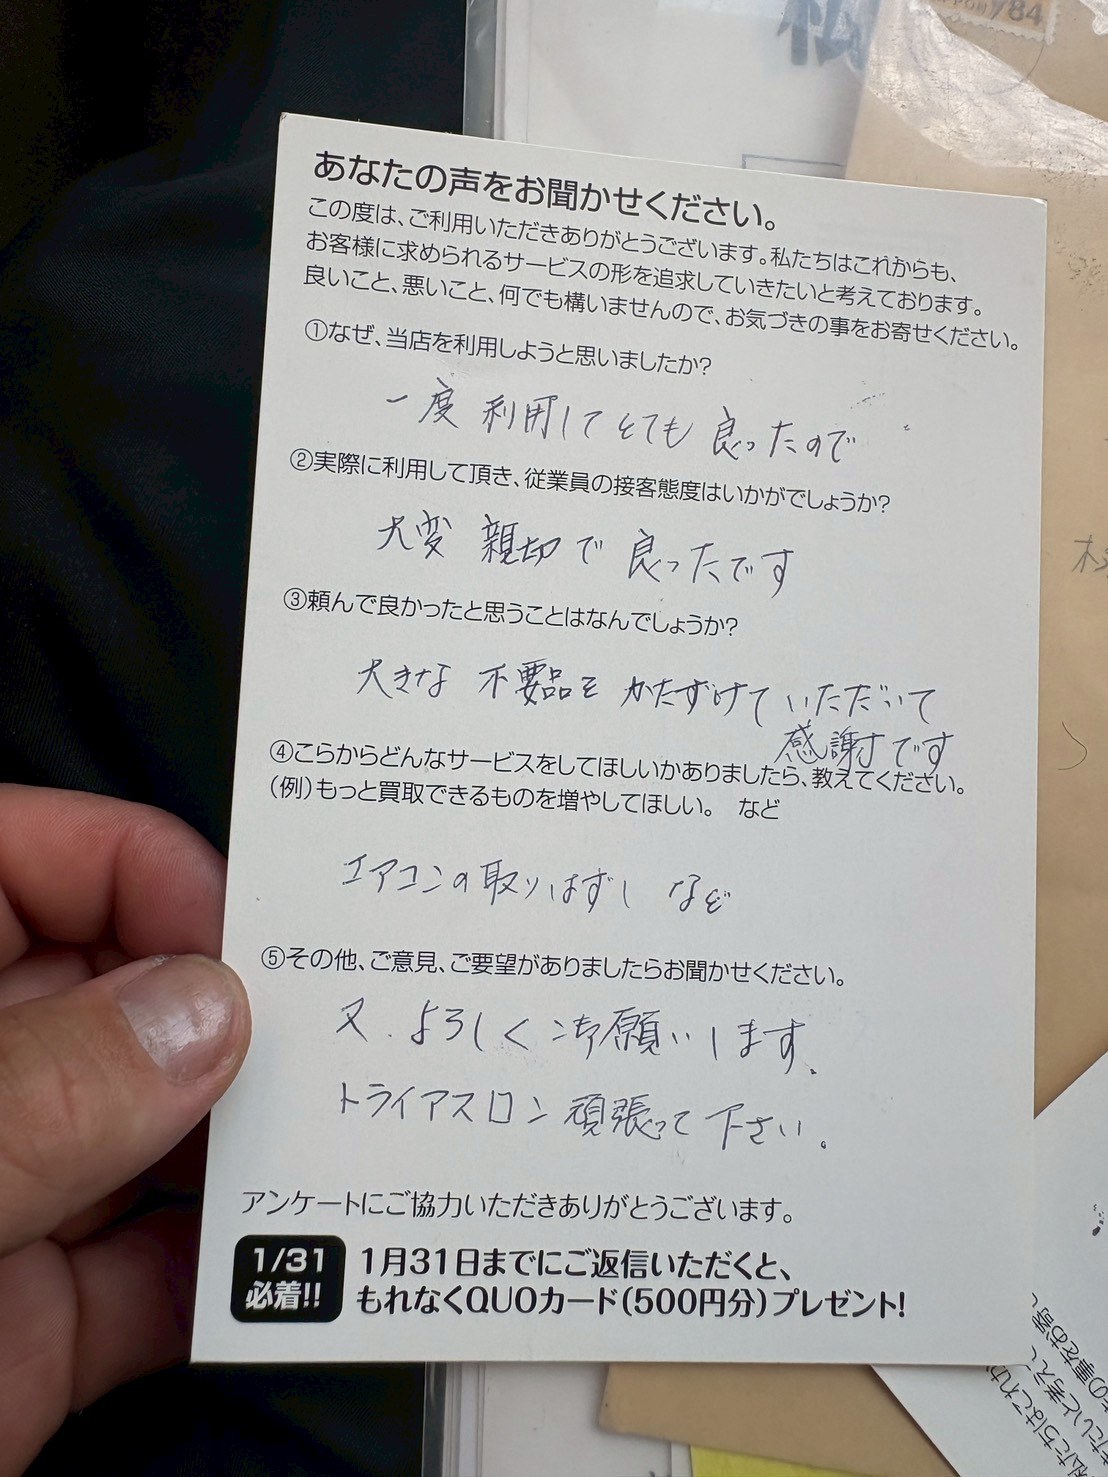 あなたの声をお聞かせください。
この度は、ご利用いただきありがとうございます。私たちはこれからも、
お客様に求められるサービスの形を追求していきたいと考えております。
良いこと、悪いこと、何でも構いませんので、お気づきの事をお寄せください。
①なぜ、当店を利用しようと思いましたか?
一度利用してとても良ったので
②実際に利用して頂き、従業員の接客態度はいかがでしょうか?
大変親切で良ったです
③頼んで良かったと思うことはなんでしょうか?
大きな不要品をかたずけていただいて
感謝です
④こらからどんなサービスをしてほしいかありましたら、教えてください。
(例)もっと買取できるものを増やしてほしい。 など
エアコンの取りはずしなど
⑤その他、ご意見、ご要望がありましたらお聞かせください。
又、よろしく御願いします。
トライアスロン頑張って下さい。
アンケートにご協力いただきありがとうございます。
1/31
必着!!
1月31日までにご返信いただくと、
もれなくQUOカード(500円分)プレゼント!
84